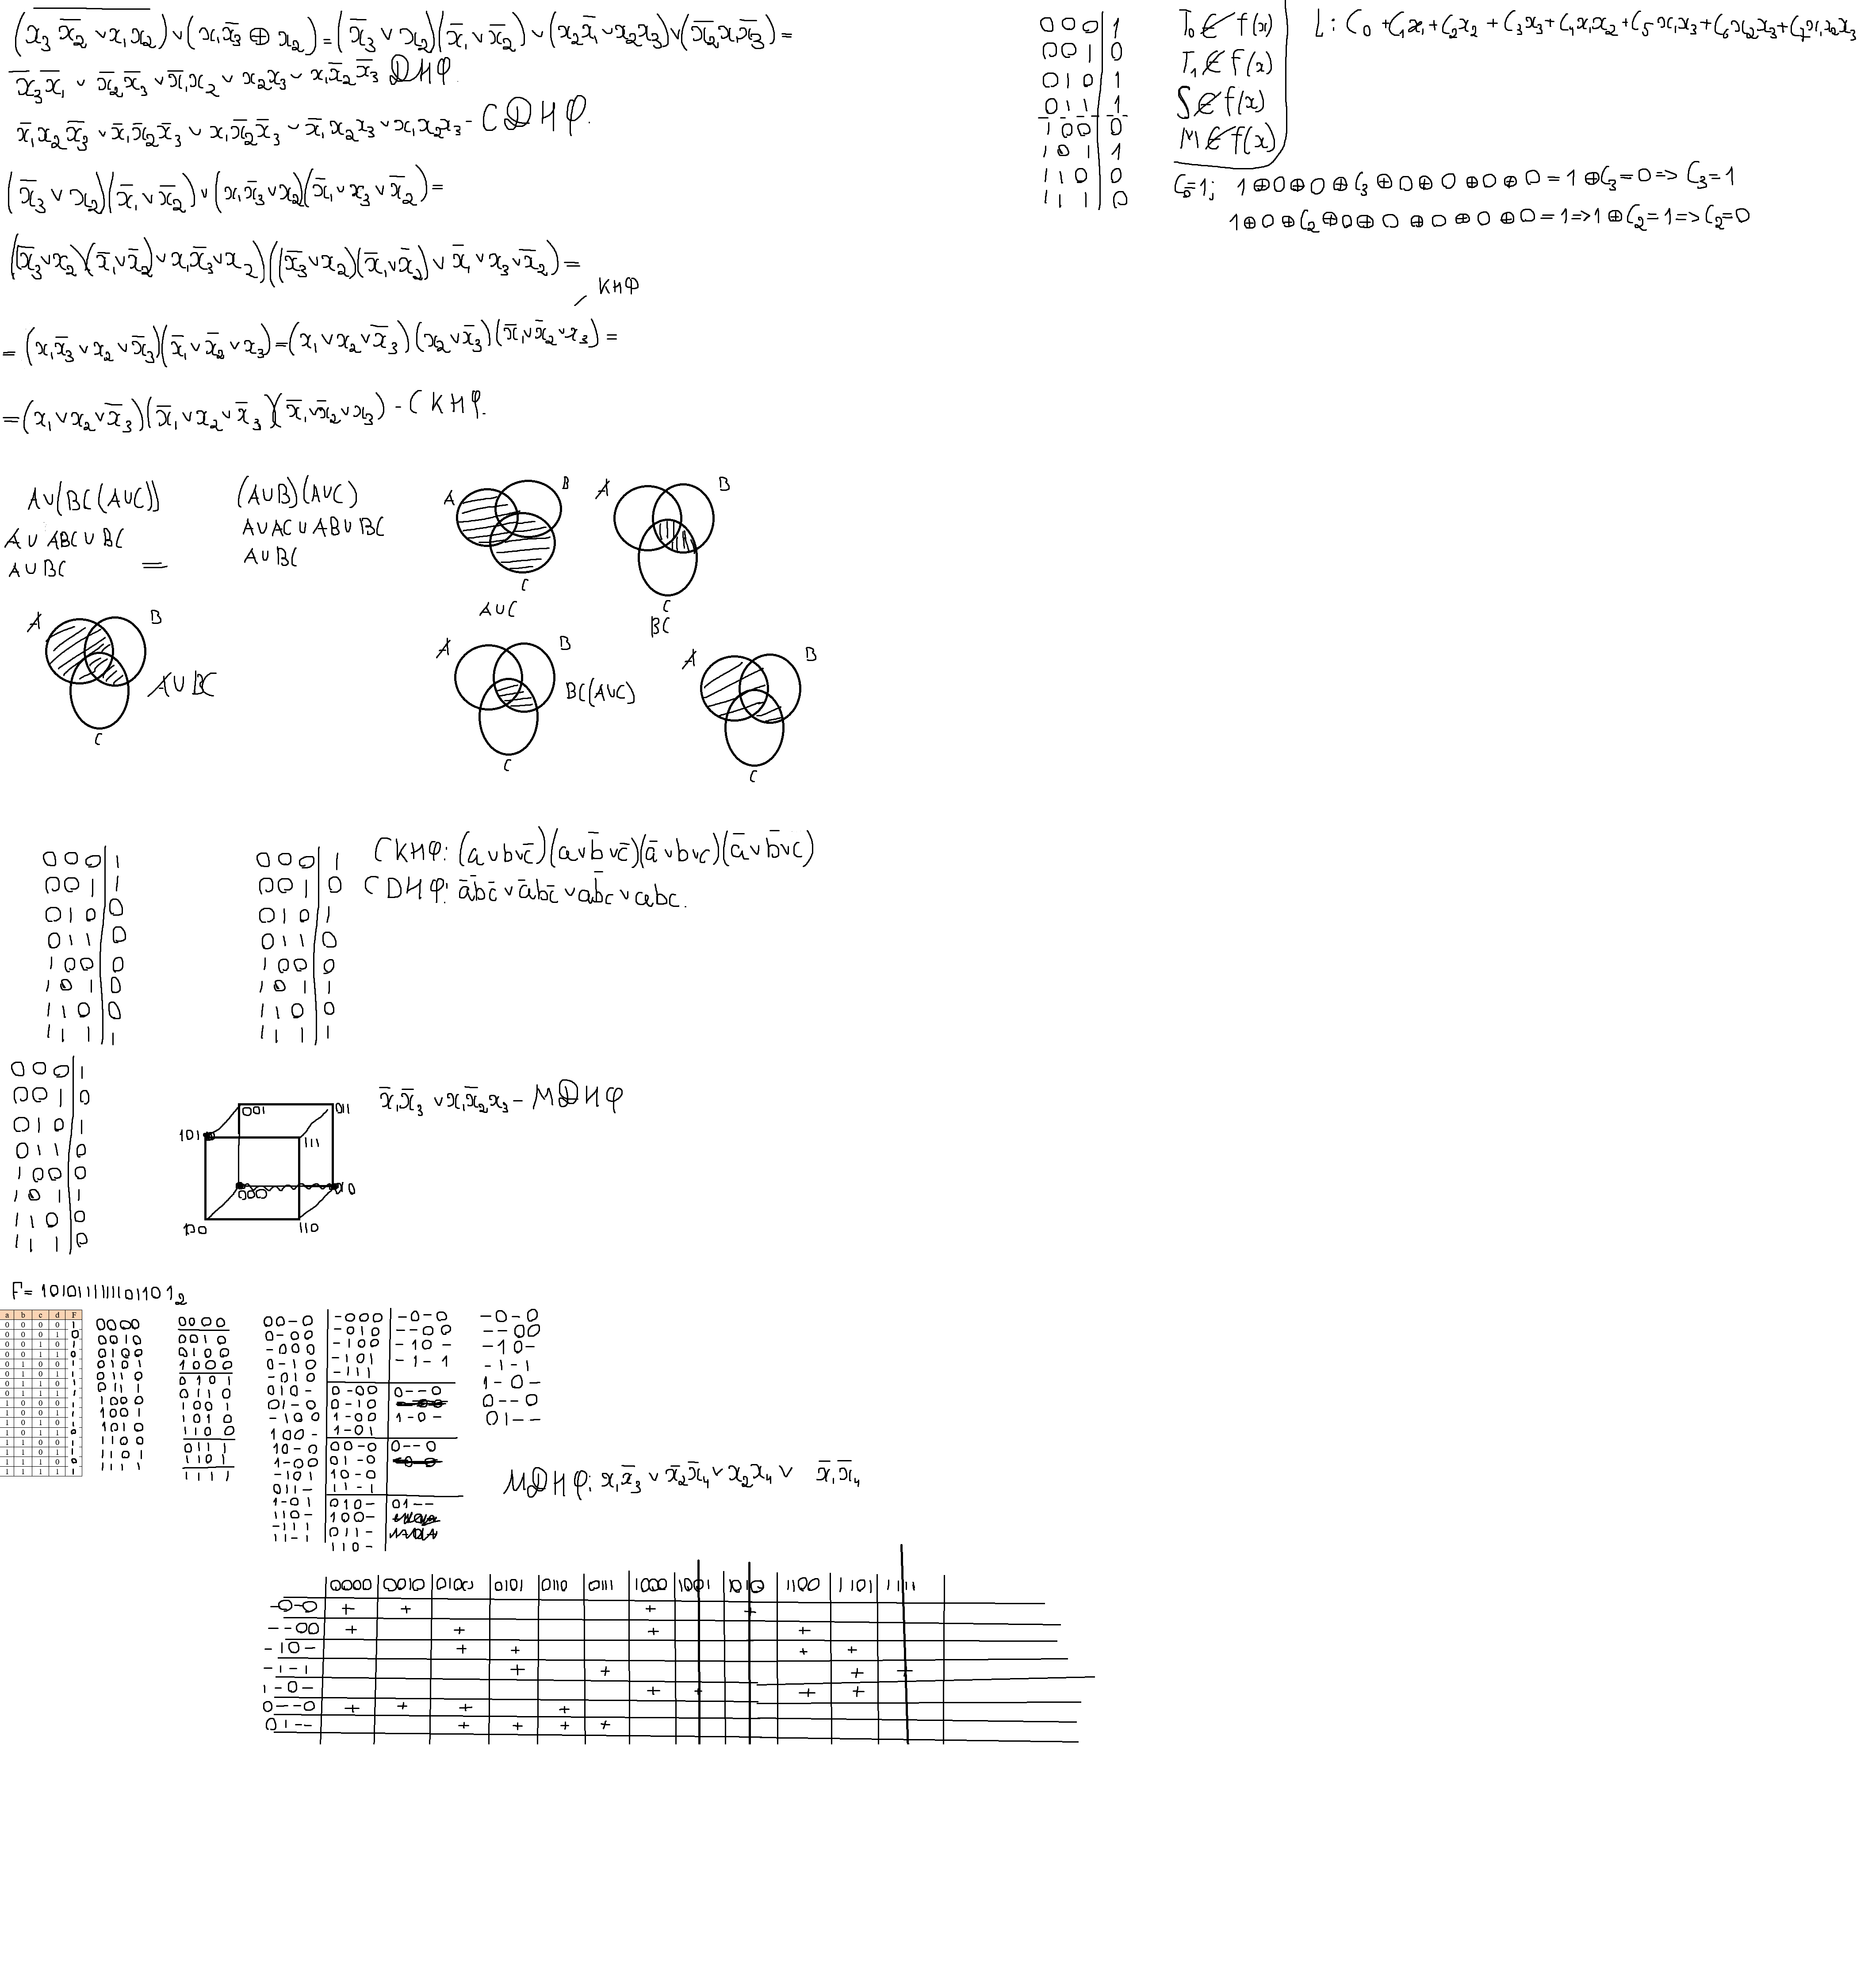 (x̅₃x̅₂ ∨ x₁x₂) ∨ (x₁x̅₃ ⊕ x₂) = (x̅₃ ∨ x₂)(x̅₁ ∨ x̅₂) ∨ (x₂x̅₁ ∨ x₂x₃) ∨ (x̅₂x₁x̅₃) =
x̅₃x̅₁ ∨ x̅₂x̅₃ ∨ x̅₁x₂ ∨ x₂x₃ ∨ x₁x̅₂x̅₃ ДНФ.
x̅₁x₂x̅₃ ∨ x̅₁x̅₂x̅₃ ∨ x₁x̅₂x̅₃ ∨ x̅₁x₂x₃ ∨ x₁x₂x₃ - СДНФ.
(x̅₃ ∨ x₂)(x̅₁ ∨ x̅₂) ∨ (x₁x̅₃ ∨ x₂)(x̅₁ ∨ x₃ ∨ x̅₂) =
((x̅₃ ∨ x₂)(x̅₁ ∨ x̅₂) ∨ x₁x̅₃ ∨ x₂)((x̅₃ ∨ x₂)(x̅₁ ∨ x̅₂) ∨ x̅₁ ∨ x₃ ∨ x̅₂) =
КНФ
= (x₁x̅₃ ∨ x₂ ∨ x̅₃)(x̅₁ ∨ x̅₂ ∨ x₃) = (x₁ ∨ x₂ ∨ x̅₃)(x₂ ∨ x̅₃)(x̅₁ ∨ x̅₂ ∨ x₃) =
= (x₁ ∨ x₂ ∨ x̅₃)(x̅₁ ∨ x₂ ∨ x̅₃)(x̅₁ ∨ x̅₂ ∨ x₃) - СКНФ.
0 0 0 | 1
0 0 1 | 0
0 1 0 | 1
0 1 1 | 1
1 0 0 | 0
1 0 1 | 1
1 1 0 | 0
1 1 1 | 0
T₀ ∉ f(x)
T₁ ∉ f(x)
S ∉ f(x)
M ∉ f(x)
L: C₀ + C₁x₁ + C₂x₂ + C₃x₃ + C₄x₁x₂ + C₅x₁x₃ + C₆x₂x₃ + C₇x₁x₂x₃
C₀=1; 1⊕0⊕0⊕C₃⊕0⊕0⊕0⊕0 = 1⊕C₃=0 => C₃=1
1⊕0⊕C₂⊕0⊕0⊕0⊕0⊕0 = 1 => 1⊕C₂=1 => C₂=0
A∪(BC(A∪C))
A∪ABC∪BC
A∪BC =
(A∪B)(A∪C)
A∪AC∪AB∪BC
A∪BC
A B C
A∪C
A B C
BC
A B C
A∪BC
A B C
BC(A∪C)
A B C
0 0 0 | 1
0 0 1 | 1
0 1 0 | 0
0 1 1 | 0
1 0 0 | 0
1 0 1 | 0
1 1 0 | 0
1 1 1 | 1
0 0 0 | 1
0 0 1 | 0
0 1 0 | 1
0 1 1 | 0
1 0 0 | 0
1 0 1 | 1
1 1 0 | 0
1 1 1 | 1
СКНФ: (a∨b∨c̅)(a∨b̅∨c̅)(a̅∨b∨c)(a̅∨b̅∨c)
СДНФ: a̅b̅c̅ ∨ a̅bc̅ ∨ ab̅c ∨ abc.
0 0 0 | 1
0 0 1 | 0
0 1 0 | 1
0 1 1 | 0
1 0 0 | 0
1 0 1 | 1
1 1 0 | 0
1 1 1 | 0
001 011
101 111
000 010
100 110
x̅₁x̅₃ ∨ x₁x̅₂x₃ - МДНФ
F= 1010111111101101₂
a b c d F
0 0 0 0 1
0 0 0 1 0
0 0 1 0 1
0 0 1 1 0
0 1 0 0 1
0 1 0 1 1
0 1 1 0 1
0 1 1 1 1
1 0 0 0 1
1 0 0 1 1
1 0 1 0 1
1 0 1 1 0
1 1 0 0 1
1 1 0 1 1
1 1 1 0 0
1 1 1 1 1
0000
0010
0100
0101
0110
0111
1000
1001
1010
1100
1101
1111
0000
0010
0100
1000
0101
0110
1001
1010
1100
0111
1101
1111
00-0
0-00
-000
0-10
-010
010-
01-0
-100
100-
10-0
1-00
-101
011-
1-01
110-
-111
11-1
-000
-010
-100
-101
-111
0-00
0-10
1-00
1-01
00-0
01-0
10-0
11-1
010-
100-
011-
110-
-0-0
--00
-10-
-1-1
0--0
1-0-
0--0
01--
-0-0
--00
-10-
-1-1
1-0-
0--0
01--
МДНФ: x₁x̅₃ ∨ x̅₂x̅₄ ∨ x₂x₄ ∨ x̅₁x̅₄
0000 0010 0100 0101 0110 0111 1000 1001 1010 1100 1101 1111
-0-0 + + + +
--00 + + + +
-10- + + + +
-1-1 + + + +
1-0- + + + +
0--0 + + + +
01-- + + + +